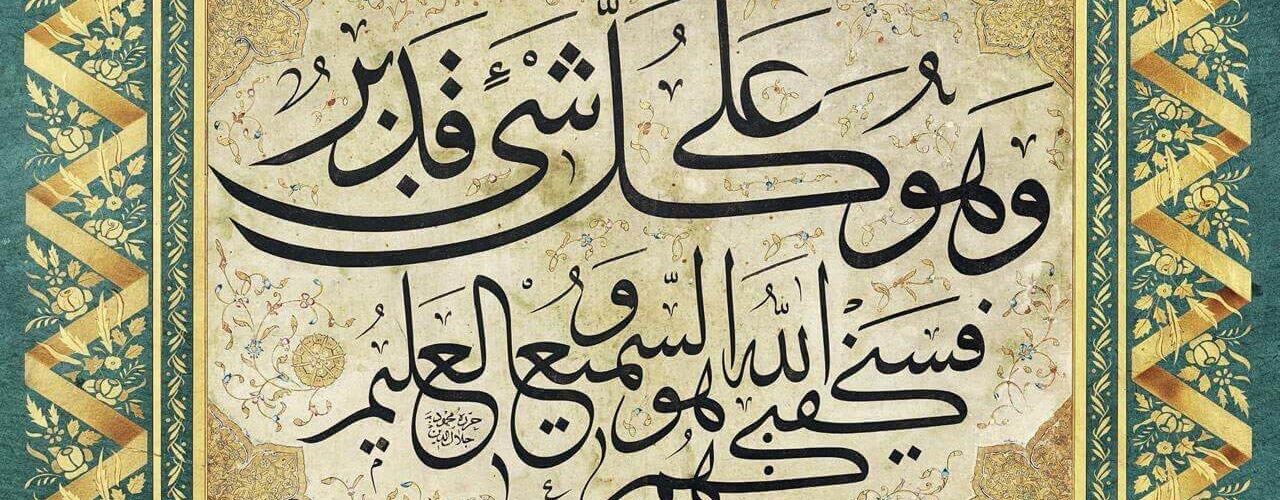 وهو على كل شئ قدير
فسيكفيكهم الله وهو السميع العليم
حرره محمود
جلال الدين